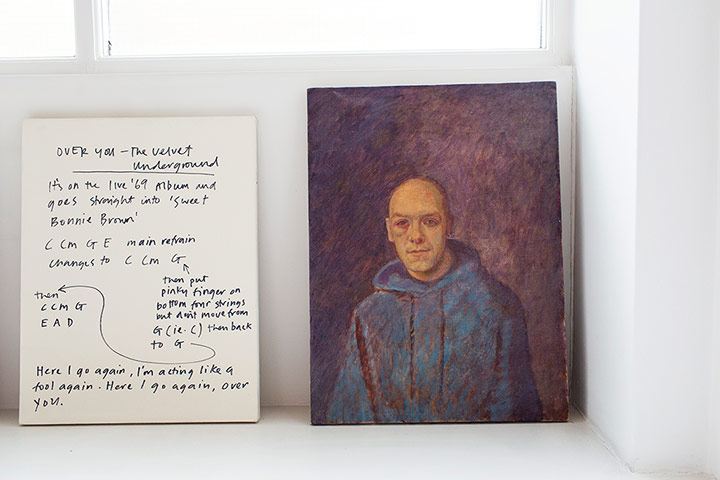 OVER YOU – The Velvet
Underground
It's on the live '69 Album and
goes straight into 'Sweet
Bonnie Brown'
C Cm G E main refrain
changes to C Cm G
then put
pinky finger on
bottom four strings
but don't move from
G (ie. C) then back
to G
then
C Cm G
E A D
Here I go again, I'm acting like a
fool again. Here I go again, over
you.